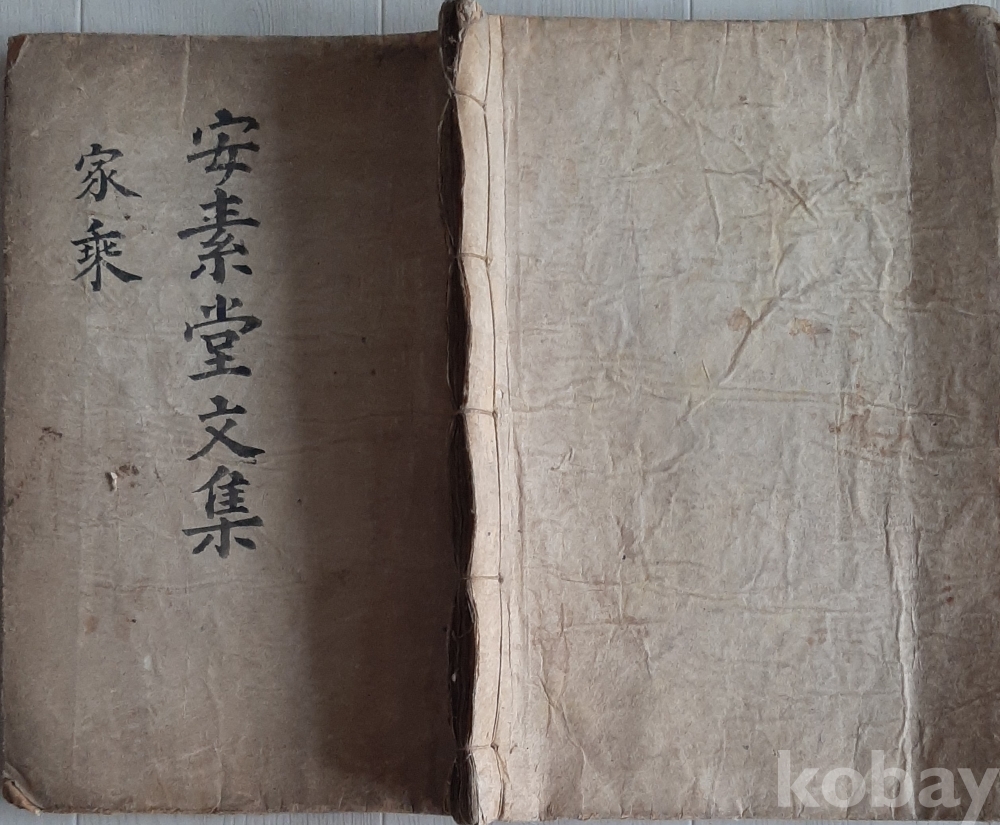 安素堂文集
家乘
kobay